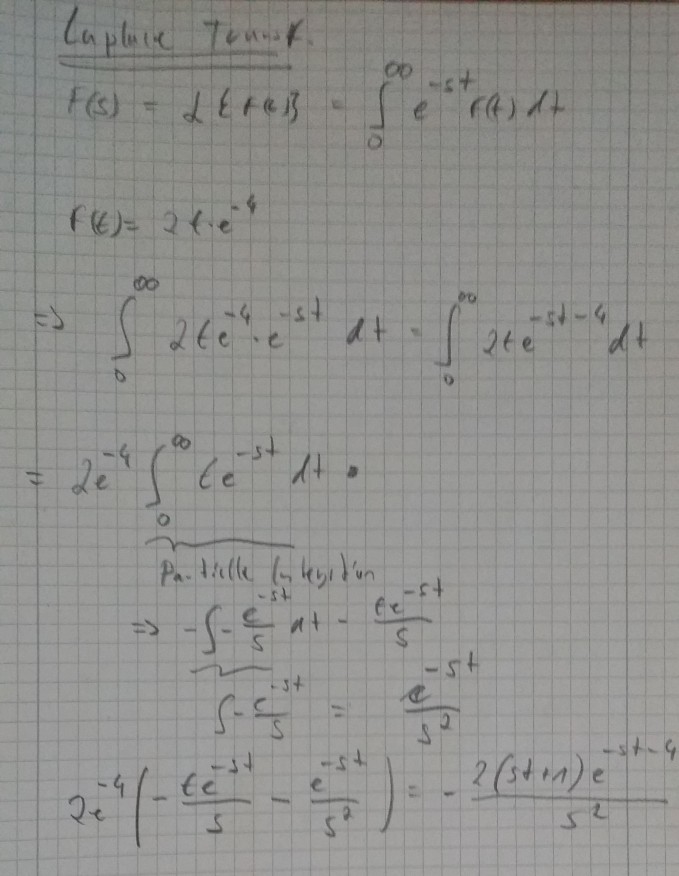 Laplace Transf.
F(s) = L{f(t)} = ∫₀^∞ e^{-st} f(t) dt
f(t) = 2t·e^{-4}
=> ∫₀^∞ 2te^{-4}·e^{-st} dt = ∫₀^∞ 2te^{-st-4} dt
= 2e^{-4} ∫₀^∞ te^{-st} dt
Partielle Integration
=> -∫ - e^{-st}/s dt - te^{-st}/s
∫ - e^{-st}/s = e^{-st}/s²
2e^{-4} ( - te^{-st}/s - e^{-st}/s² ) = - 2(st+1)e^{-st-4}/s²